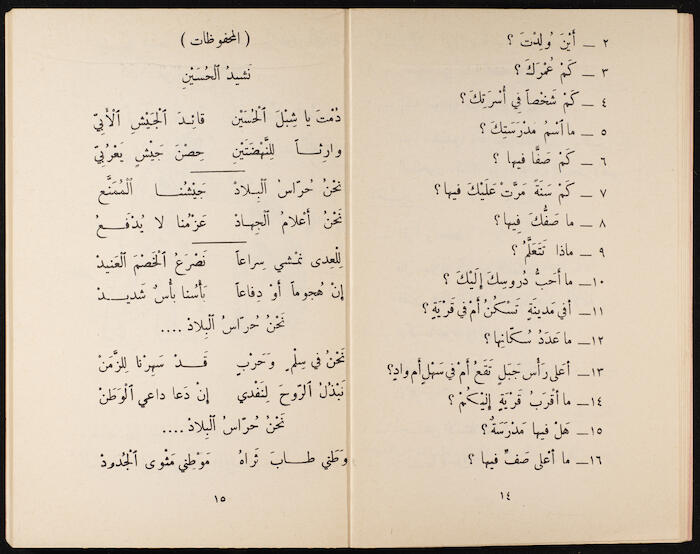 ٢ ــ أَيْنَ وُلِدْتَ ؟
٣ ــ كَمْ عُمْرَكَ ؟
٤ ــ كَمْ شَخْصاً فِي أُسْرَتِكَ ؟
٥ ــ ما اسْمُ مَدْرَسَتِكَ ؟
٦ ــ كَمْ صَفًّا فيها ؟
٧ ــ كَمْ سَنَةً مَرَّتْ عَلَيْكَ فيها ؟
٨ ــ ما صَفُّكَ فِيها ؟
٩ ــ ماذا تَتَعَلَّمُ ؟
١٠ــ ما أَحَبُّ دُروسِكَ إِلَيْكَ ؟
١١ــ أَفي مَدينَةٍ تَسْكُنُ أَمْ في قَرْيَةٍ ؟
١٢ــ ما عَدَدُ سُكّانِها ؟
١٣ــ أَعلى رَأْسِ جَبَلٍ تَقَعُ أَمْ في سَهْلٍ أَم وادٍ؟
١٤ــ ما أَقْرَبُ قَرْيَةٍ إِلَيْكُمْ ؟
١٥ــ هَلْ فيها مَدْرَسَةٌ ؟
١٦ــ ما أَعْلى صَفٍّ فيها ؟
١٤
( المحفوظات )
نَشيدُ ٱلْحُسَيْنِ
دُمْتَ يا شِبْلَ ٱلْحُسَيْنِ قائِدَ ٱلْجَيْشِ ٱلْأَبِيّ
وارِثاً لِلنَّهْضَتَيْنِ حِصْنَ جَيْشٍ يَعْرُبِيّ
نَحْنُ حُرّاسُ ٱلْبِلادْ جَيْشُنا ٱلْمُمَنَّعُ
نَحْنُ أَعْلامُ ٱلْجِهادْ عَزْمُنا لا يُدْفَعُ
لِلْعِدى نَمْشي سِراعاً نَصْرَعُ ٱلْخَصْمَ ٱلْعَنيدْ
إِنْ هُجوماً أَوْ دِفاعاً بَأْسُنا بَأْسٌ شَديدْ
نَحْنُ حُرّاسُ ٱلْبِلادْ ....
نَحْنُ في سِلْمٍ وَحَرْبٍ قَدْ سَهِرْنا لِلزَّمَنْ
نَبْذُلُ ٱلرّوحَ لِنَفْدي إِنْ دَعا داعي ٱلْوَطَنْ
نَحْنُ حُرّاسُ ٱلْبِلادْ ....
وَطَني طابَ ثَراهُ مَوْطِني مَثْوى ٱلْجُدودْ
١٥